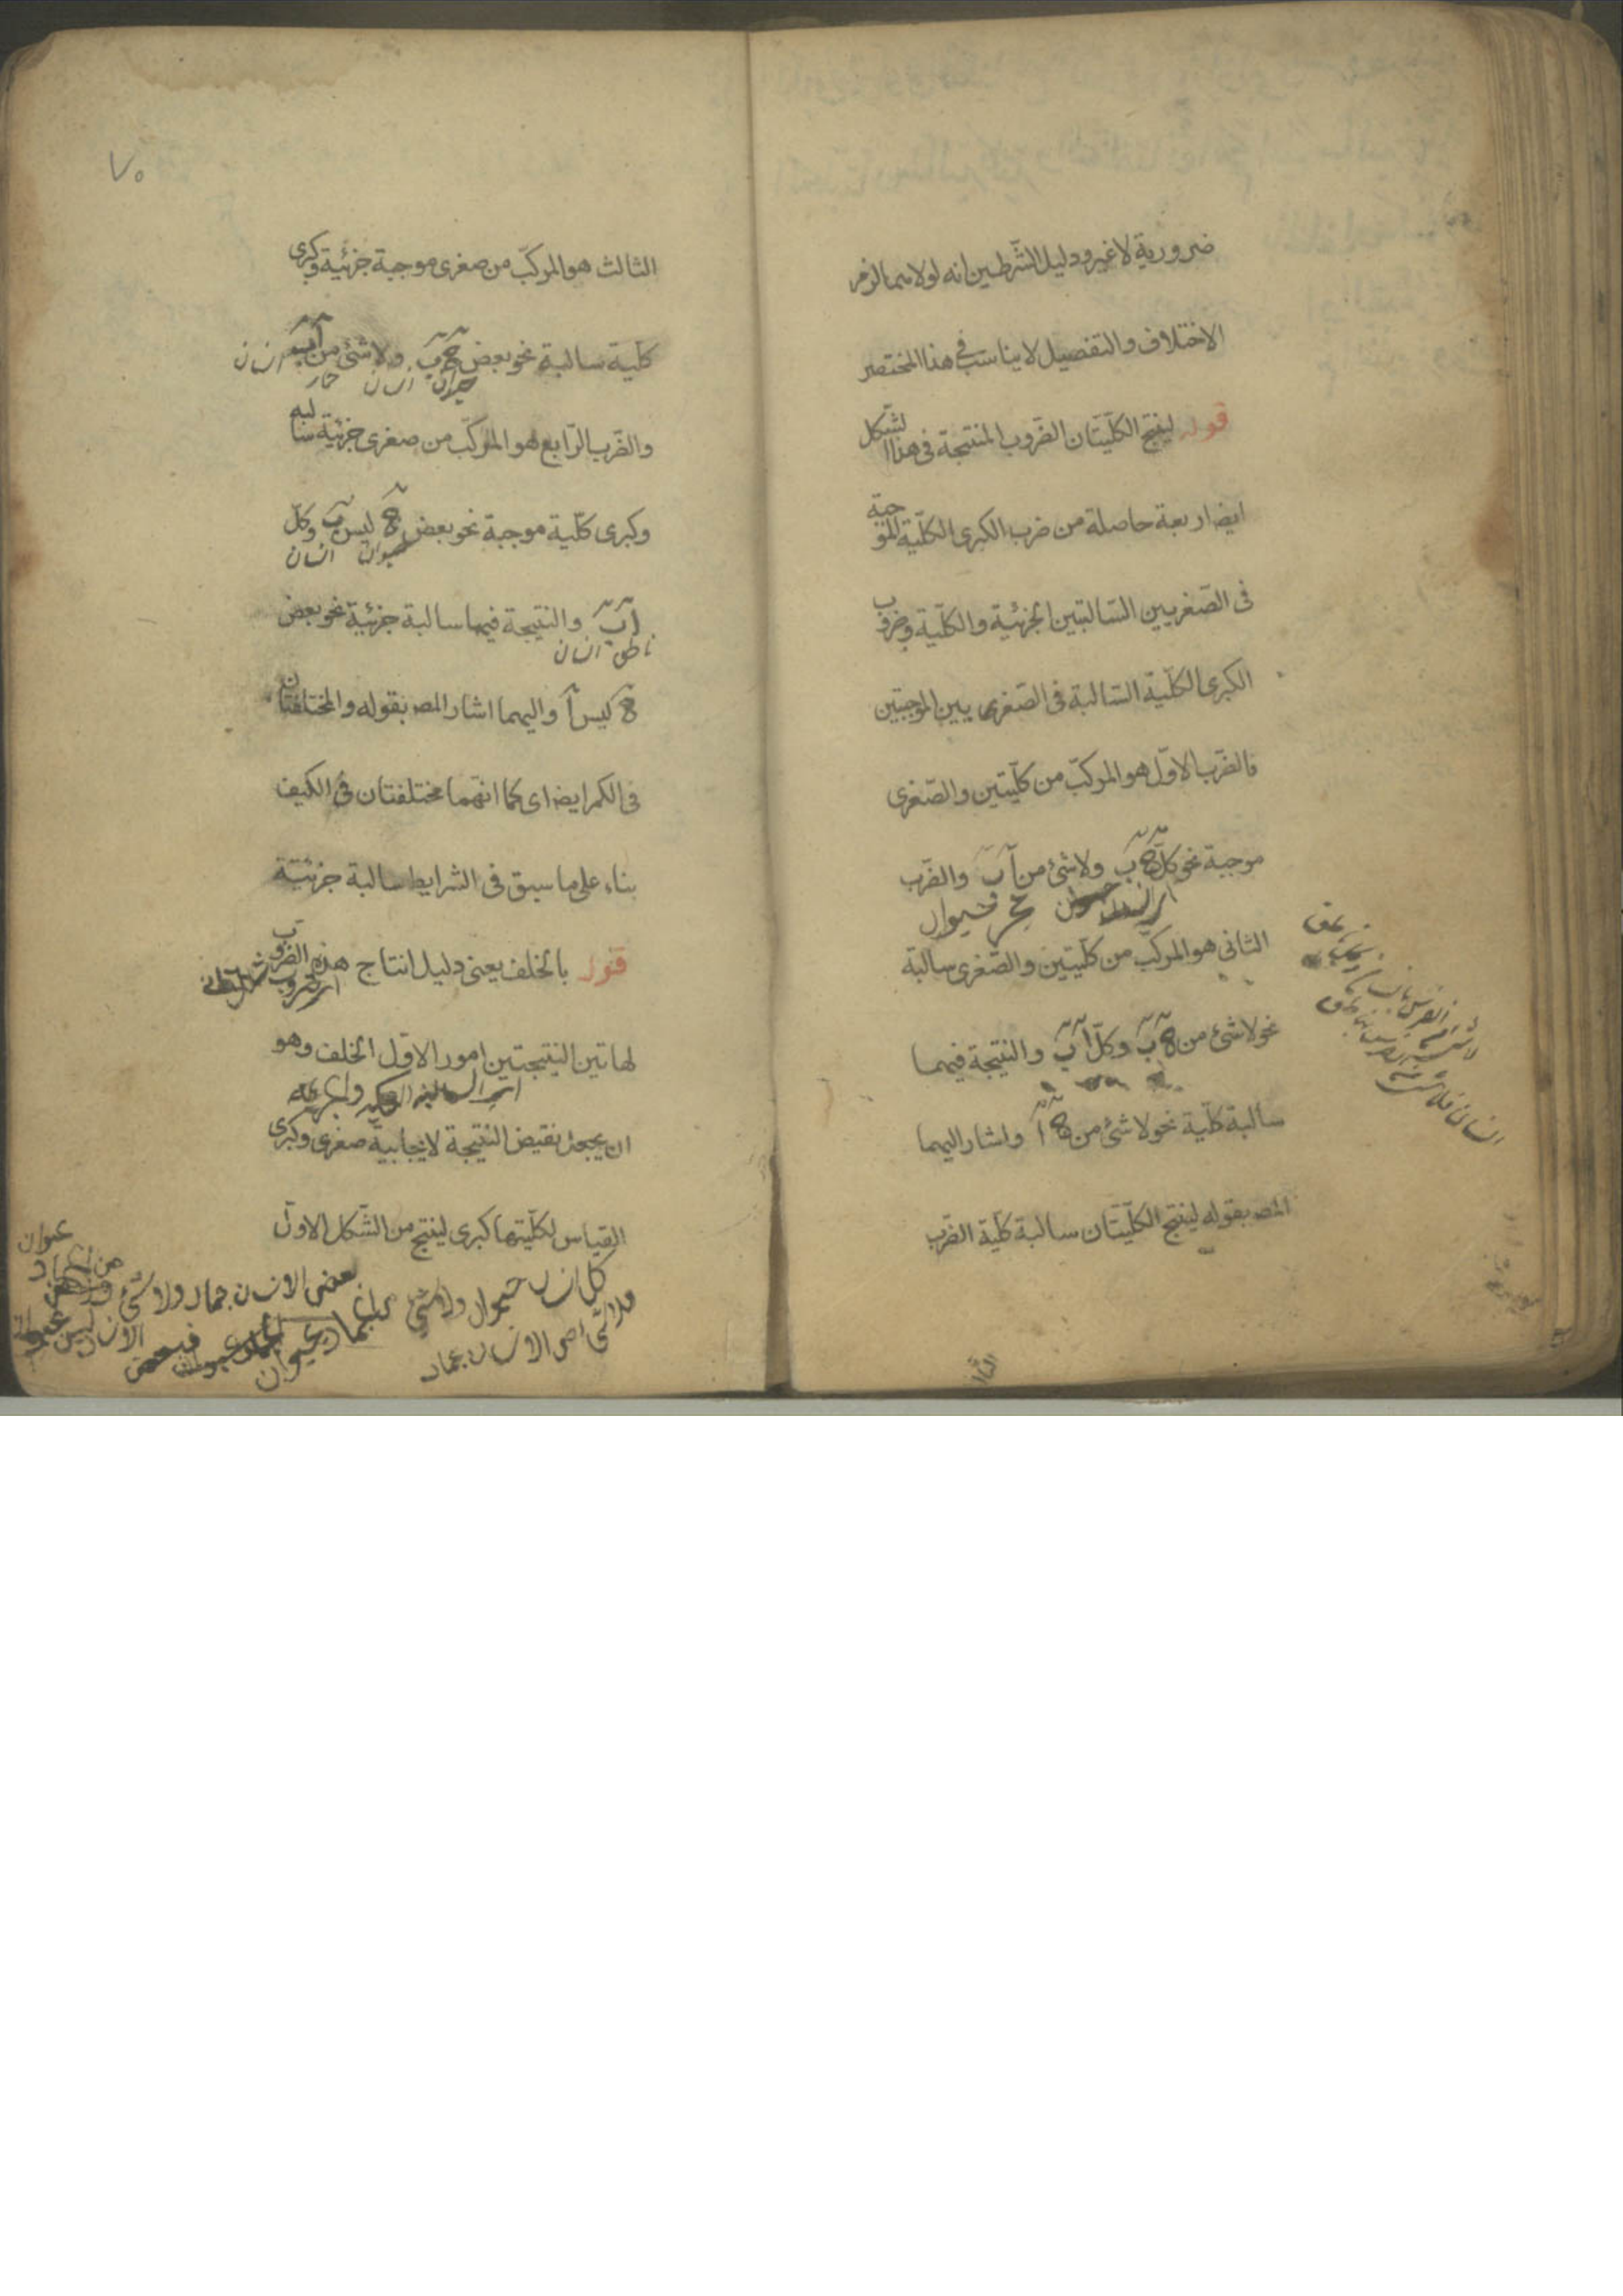 ضرورية لا غير ودليل الشّرطين انه لولاهما لزم
الاختلاف والتفصيل لا يناسب في هذا المختصر
قوله لينتج الكلّيتان الضّروب المنتجة في هذا الشّكل
ايضا اربعة حاصلة من ضرب الكبرى الكلّية الموجبة
فى الصّغريين السّالبتين الجزئية والكلّية وضرب
الكبرى الكلّية السّالبة فى الصّغريين الموجبتين
فالضّرب الاوّل هو المركبّ من كلّيتين والصّغرى
موجبة نحو كلّ ج ب ولا شئ من آ ب والضّرب
حجر حيوان
الثانى هو المركبّ من كلّيتين والصّغرى سالبة
نحو لا شئ من ج ب وكلّ آ ب والنتيجة فيهما
سالبة كلّية نحو لا شئ من ج آ واشار اليهما
المص بقوله لينتج الكلّيتان سالبة كلّية الضّرب
الثا
٧٥
الثالث هو المركبّ من صغرى موجبة جزئية وكبرى
كلّية سالبة نحو بعض ج ب ولا شئ من آ ب
حيوان انسان حمار انسان
والضّرب الرّابع هو المركبّ من صغرى جزئية سالبه
وكبرى كلّية موجبة نحو بعض ج ليس ب وكلّ
حيوان انسان
آ ب والنتيجة فيهما سالبة جزئية نحو بعض
ناطق انسان
ج ليس آ واليهما اشار المص بقوله والمختلفتان
فى الكم ايضا اى كما انّهما مختلفتان فى الكيف
بناء على ما سبق فى الشرايط سالبة جزئيّة
قوله بالخلف يعنى دليل انتاج هذه الضّروب
لهاتين النتيجتين امور الاوّل الخلف وهو
ان يجعل نقيض النتيجة لايجابيّة صغرى وكبرى
القياس لكلّيتها كبرى لينتج من الشّكل الاوّل
كل انسان حيوان ولا شئ
فلا شئ من الانسان بجماد
بعض الانسان جماد ولا شئ